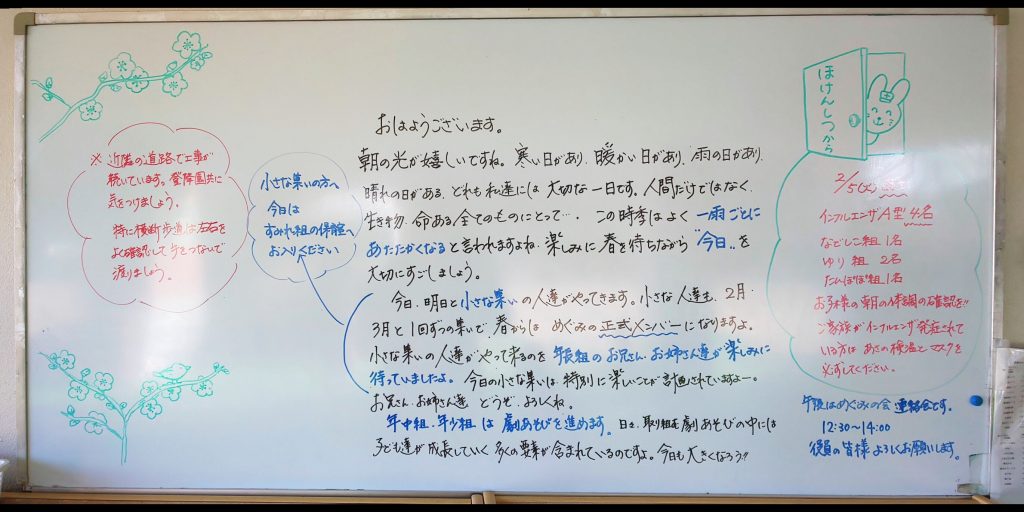 おはようございます。
朝の光が嬉しいですね。寒い日があり、暖かい日があり、雨の日があり、
晴れの日がある、どれも私達には大切な一日です。人間だけではなく、
生き物、命ある全てのものにとって・・。この時季はよく一雨ごとに
あたたかくなると言われますよね。楽しみに春を待ちながら"今日"を
大切にすごしましょう。
今日、明日と小さな集いの人達がやってきます。小さな人達も、2月・
3月と1回ずつの集いで、春からは めぐみの正式メンバーになりますよ。
小さな集いの人達がやって来るのを 年長組のお兄さん・お姉さん達が楽しみに
待っていましたよ。今日の小さな集いは、特別に楽しいことが計画されていますよー。
お兄さん・お姉さん達 どうぞ、よろしくね。
年中組・年少組は 劇あそびを進めます。日々、取り組む劇あそびの中には
子ども達が成長していく 多くの要素が含まれているのですよ。今日も大きくなろう!!
※近隣の道路で工事が
続いています。登降園共に
気をつけましょう。
特に横断歩道は左右を
よく確認して手をつないで
渡りましょう。
小さな集いの方へ
今日は
すみれ組の保育室へ
お入りください
ほけんしつから
2/5(火)
インフルエンザA型 4名
なでしこ組 1名
ゆり組 2名
たんぽぽ組 1名
お子様の朝の体調の確認を!!
ご家族がインフルエンザ発症されて
いる方は あさの検温とマスクを
必ずしてください。
午後はめぐみの会 連絡会です。
12:30〜14:00
役員の皆様 よろしくお願いします。